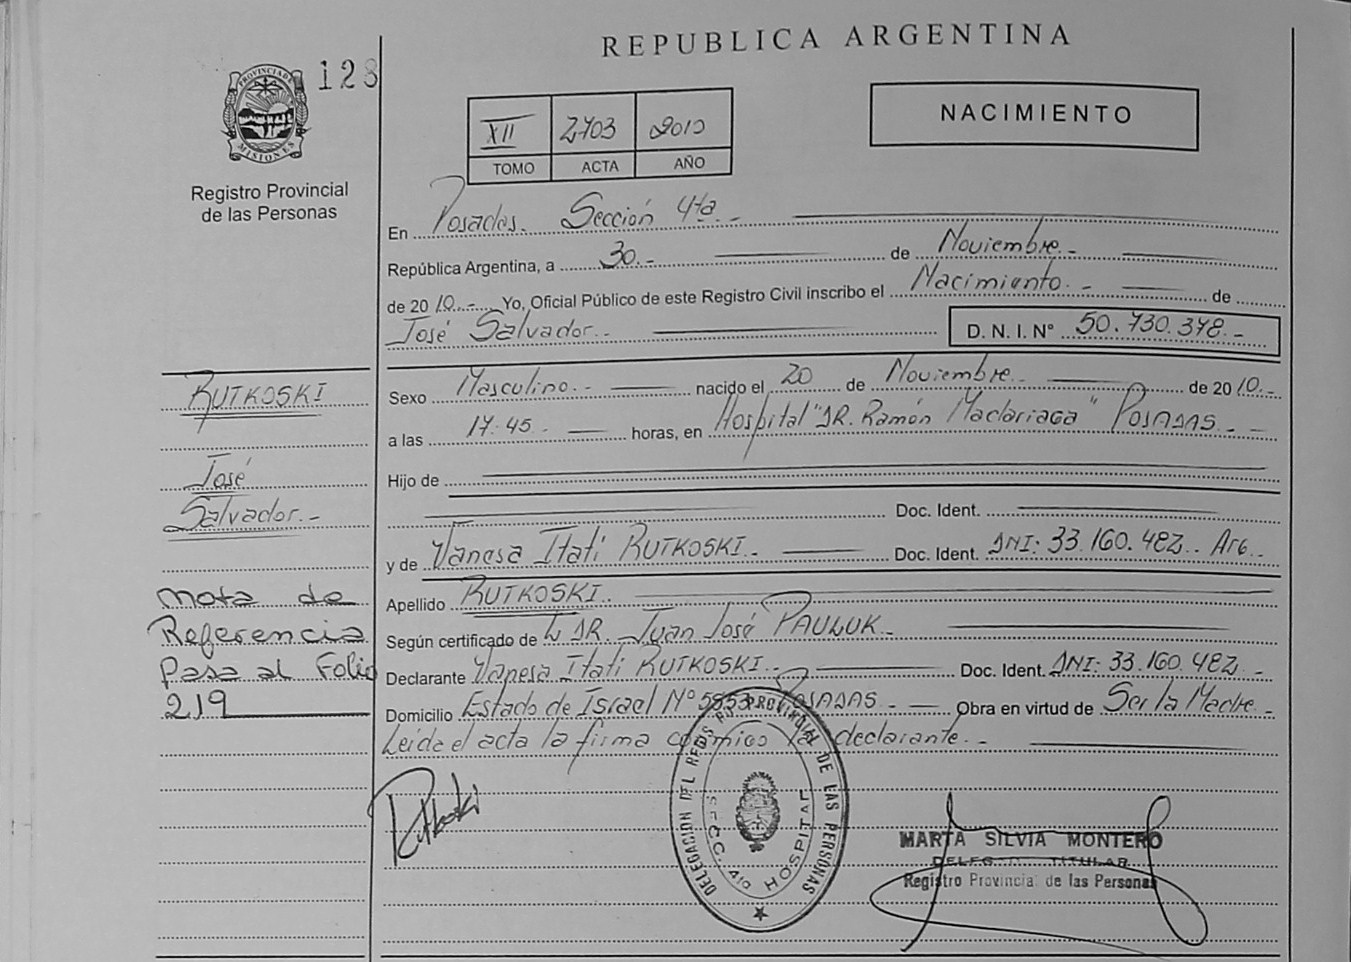 REPUBLICA ARGENTINA
128
PROVINCIA DE MISIONES
Registro Provincial
de las Personas
NACIMIENTO
XII 2703 2010
TOMO ACTA AÑO
En Posadas. Sección 4ta.-
República Argentina, a 30.- de Noviembre.-
de 2010.- Yo, Oficial Público de este Registro Civil inscribo el Nacimiento.- de
José Salvador.- D. N. I. Nº 50.730.378.-
RUTKOSKI
José
Salvador.-
Sexo Masculino.- nacido el 20 de Noviembre.- de 2010.-
a las 17.45.- horas, en Hospital "DR. Ramón Madariaga" POSADAS.-
Hijo de
Doc. Ident.
y de Vanesa Itati RUTKOSKI.- Doc. Ident. DNI: 33.160.482.. Arg.-
Apellido RUTKOSKI..
Según certificado de DR. Juan José PAULUK.-
Declarante Vanesa Itati RUTKOSKI.- Doc. Ident. DNI: 33.160.482.-
Domicilio Estado de Israel Nº 5853 POSADAS.- Obra en virtud de Ser la Madre.-
Leída el acta la firma conmigo la declarante.-
Nota de
Referencia
Pasa al Folio
219
Rutkoski
DELEGACION DEL REGIS RO PROVINCIAL DE LAS PERSONAS
SECC. 4ta HOSPITAL
MARTA SILVIA MONTERO
TITULAR
Registro Provincial de las Personas